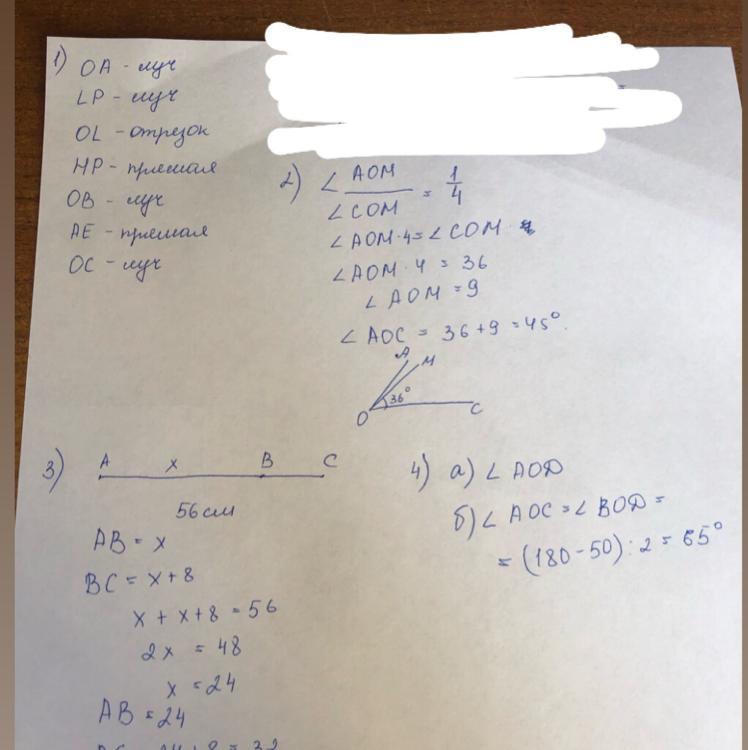 1) OA - луч
LP - луч
OL - отрезок
HP - прямая
OB - луч
AE - прямая
OC - луч
2) ∠ AOM / ∠ COM = 1/4
∠ AOM · 4 = ∠ COM
∠ AOM · 4 = 36
∠ AOM = 9
∠ AOC = 36 + 9 = 45°.
A
M
36°
O
C
3) A x B C
56 см
AB = x
BC = x + 8
x + x + 8 = 56
2x = 48
x = 24
AB = 24
BC = 24 + 8 = 32
4) а) ∠ AOD
б) ∠ AOC = ∠ BOD =
= (180 - 50) : 2 = 65°